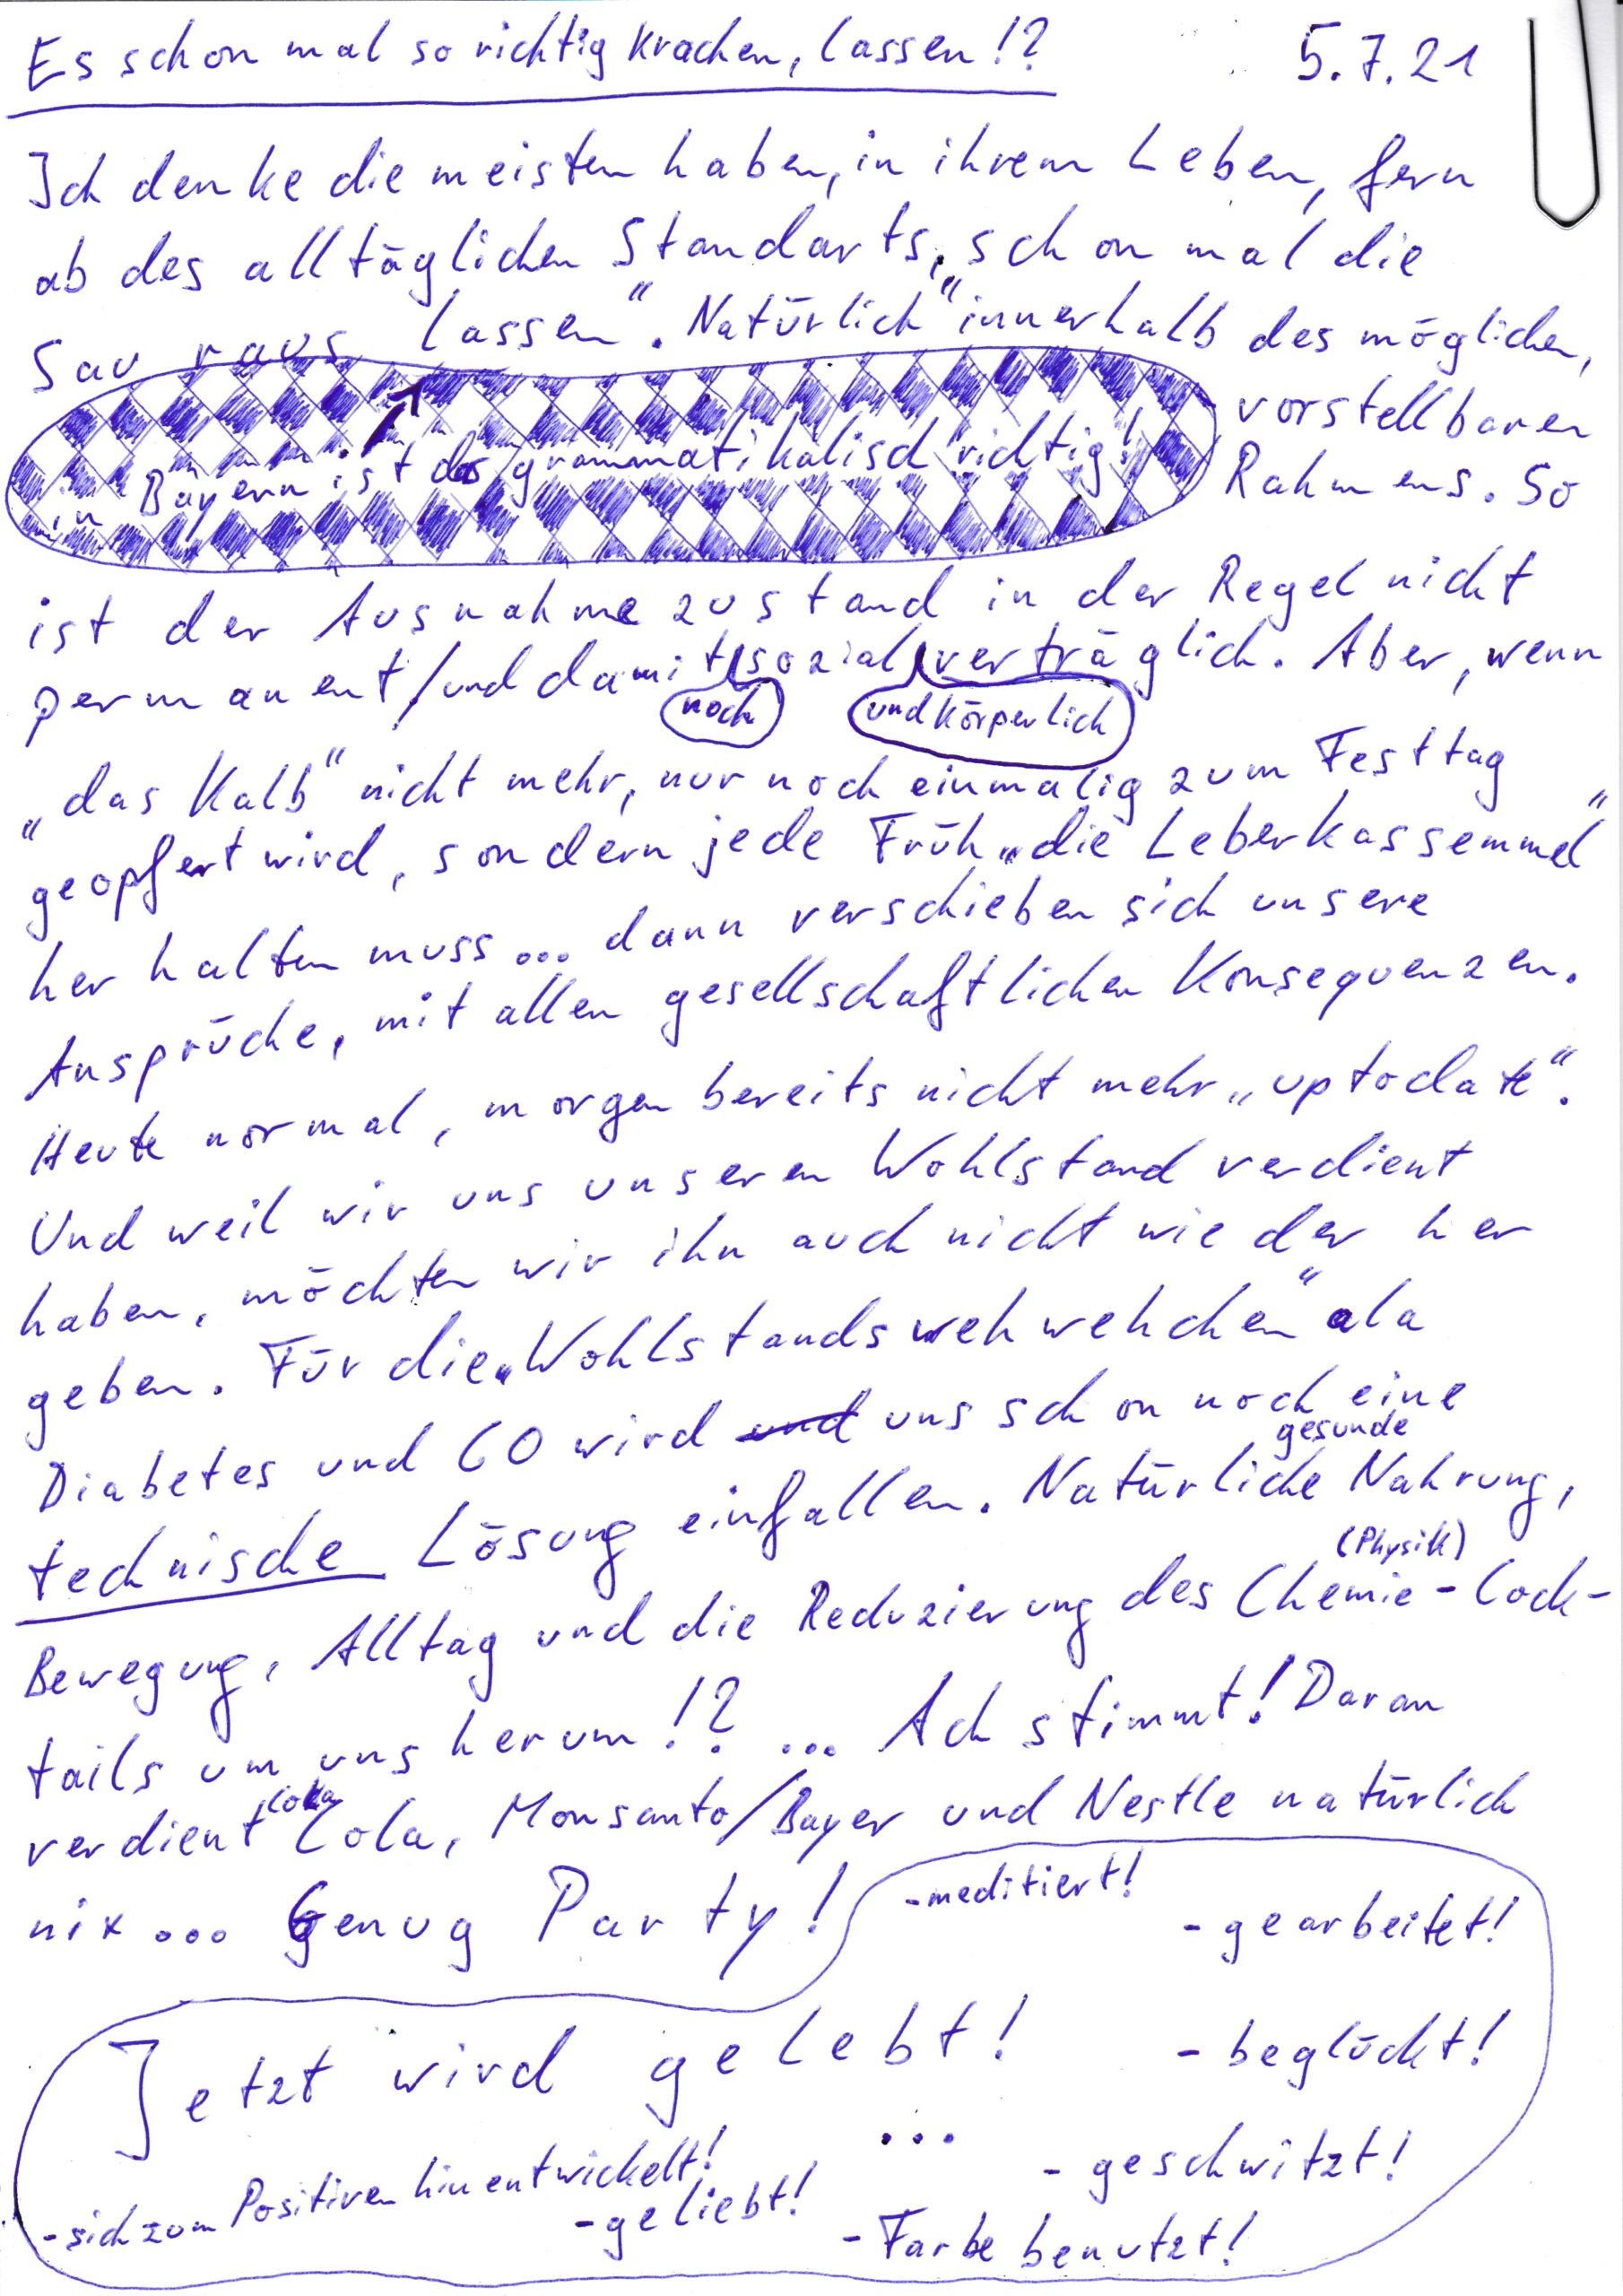 Es schon mal so richtig krachen, lassen!?
5.7.21
Ich denke die meisten haben, in ihrem Leben, fern
ab des alltäglichen Standarts, „schon mal die
Sau raus lassen“. Natürlich“ innerhalb des möglichen,
vorstellbaren
in Bayern ist das grammatikalisch richtig!
Rahmens. So
ist der Ausnahmezustand in der Regel nicht
permanent/und damit sozial verträglich. Aber, wenn
noch
und körperlich
„das Kalb“ nicht mehr, nur noch einmalig zum Festtag
geopfert wird, sondern jede Früh „die Leberkassemmel“
her halten muss... dann verschieben sich unsere
Ansprüche, mit allen gesellschaftlichen Konsequenzen.
Heute normal, morgen bereits nicht mehr „uptodate“.
Und weil wir uns unseren Wohlstand verdient
haben, möchten wir ihn auch nicht wieder her
geben. Für die „Wohlstandswehwehchen“ ala
Diabetes und CO wird und uns schon noch eine
gesunde
technische Lösung einfallen. Natürliche Nahrung,
(Physik)
Bewegung, Alltag und die Reduzierung des Chemie-Cock-
tails um uns herum!? ... Ach stimmt! Daran
Coka
verdient Cola, Monsanto/Bayer und Nestle natürlich
nix... Genug Party!
-meditiert!
-gearbeitet!
Jetzt wird gelebt!
-beglückt!
...
-geschwitzt!
-sich zum Positiven hin entwickelt!
-geliebt!
-Farbe benutzt!